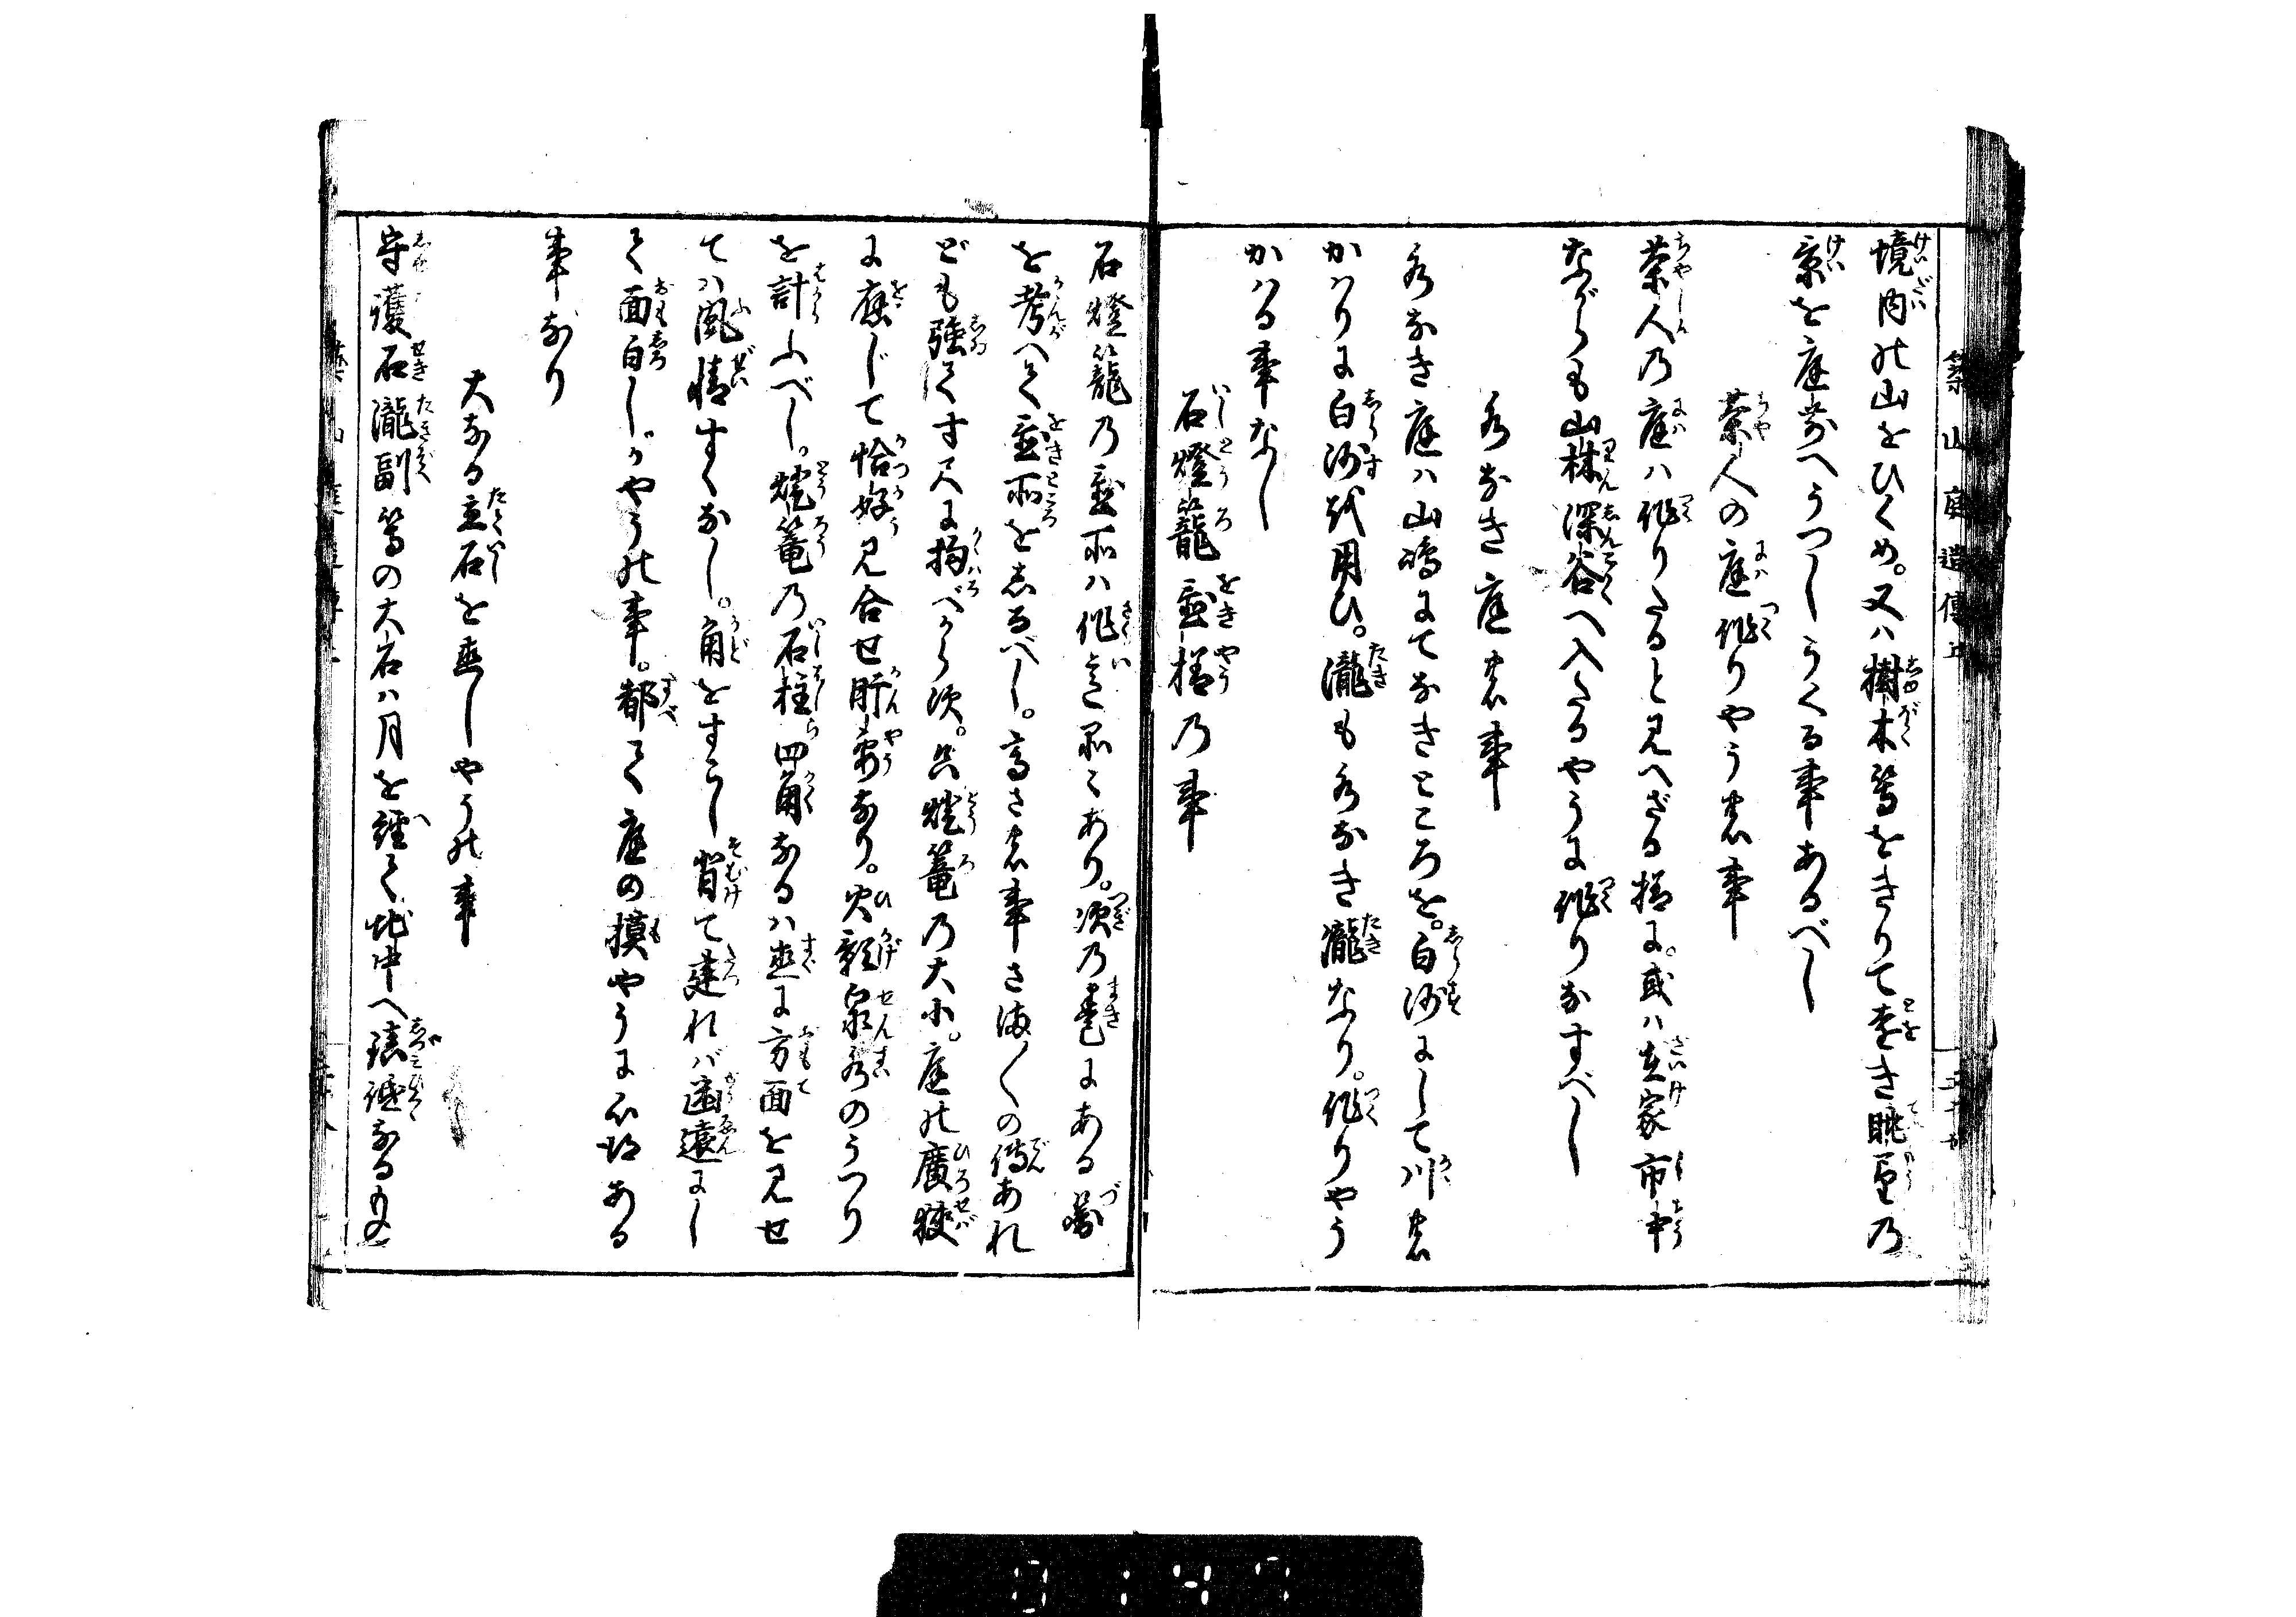 築山庭造傳上
境内の山をひくめ。又ハ樹木等をきりて遠き眺望乃
景を庭前へうつしうくる事あるべし
茶人の庭作りやう之事
茶人乃庭ハ作りたると見へざる様に。或ハ在家市中
ながらも山林深谷へ入たるやうに作りなすべし
水なき庭之事
水なき庭ハ山嶋にてなきところを。白沙にして川之
かハりに白沙を用ひ。瀧も水なき瀧なり。作りやう
かハる事なし
石燈籠置様乃事
石燈籠乃置所ハ作意品々あり。次乃巻にある圖
を考へて置所をしるべし。高さ之事さま〲の傳あれ
ども強て寸尺に拘べからず。只燈篭乃大小。庭の廣狭
に應じて恰好見合せ肝要なり。火影泉水のうつり
を計ふべし。燈篭乃石柱四角なるハ直に方面を見せ
てハ風情すくなし。角をすらし背て建れバ遥遠にし
て面白し。かやうの事。都て庭の摸やうに心得ある
事なり
大なる立石を直しやうの事
守護石瀧副等の大石ハ月を經て地中へ